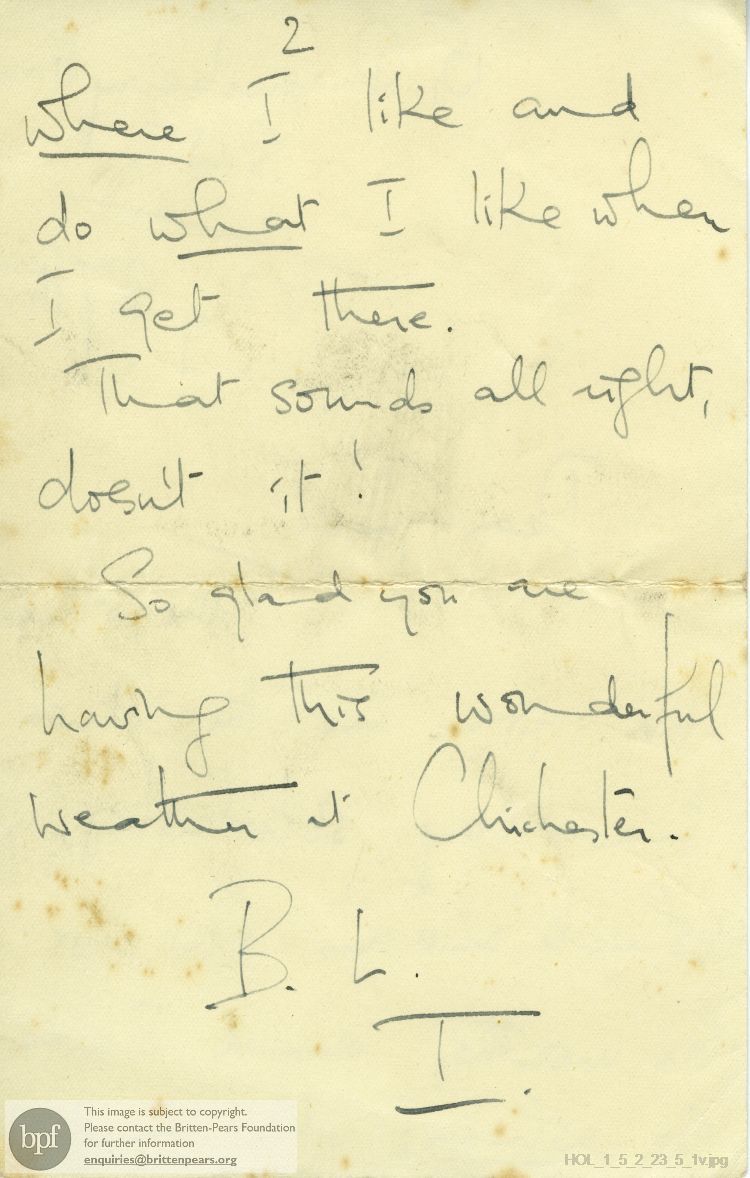 2
where I like and
do what I like when
I get there.
That sounds all right,
doesn't it!
So glad you are
having this wonderful
weather at Chichester.
B. L.
I.
bpf
This image is subject to copyright.
Please contact the Britten-Pears Foundation
for further information
enquiries@brittenpears.org
HOL_1_5_2_23_5_1v.jpg